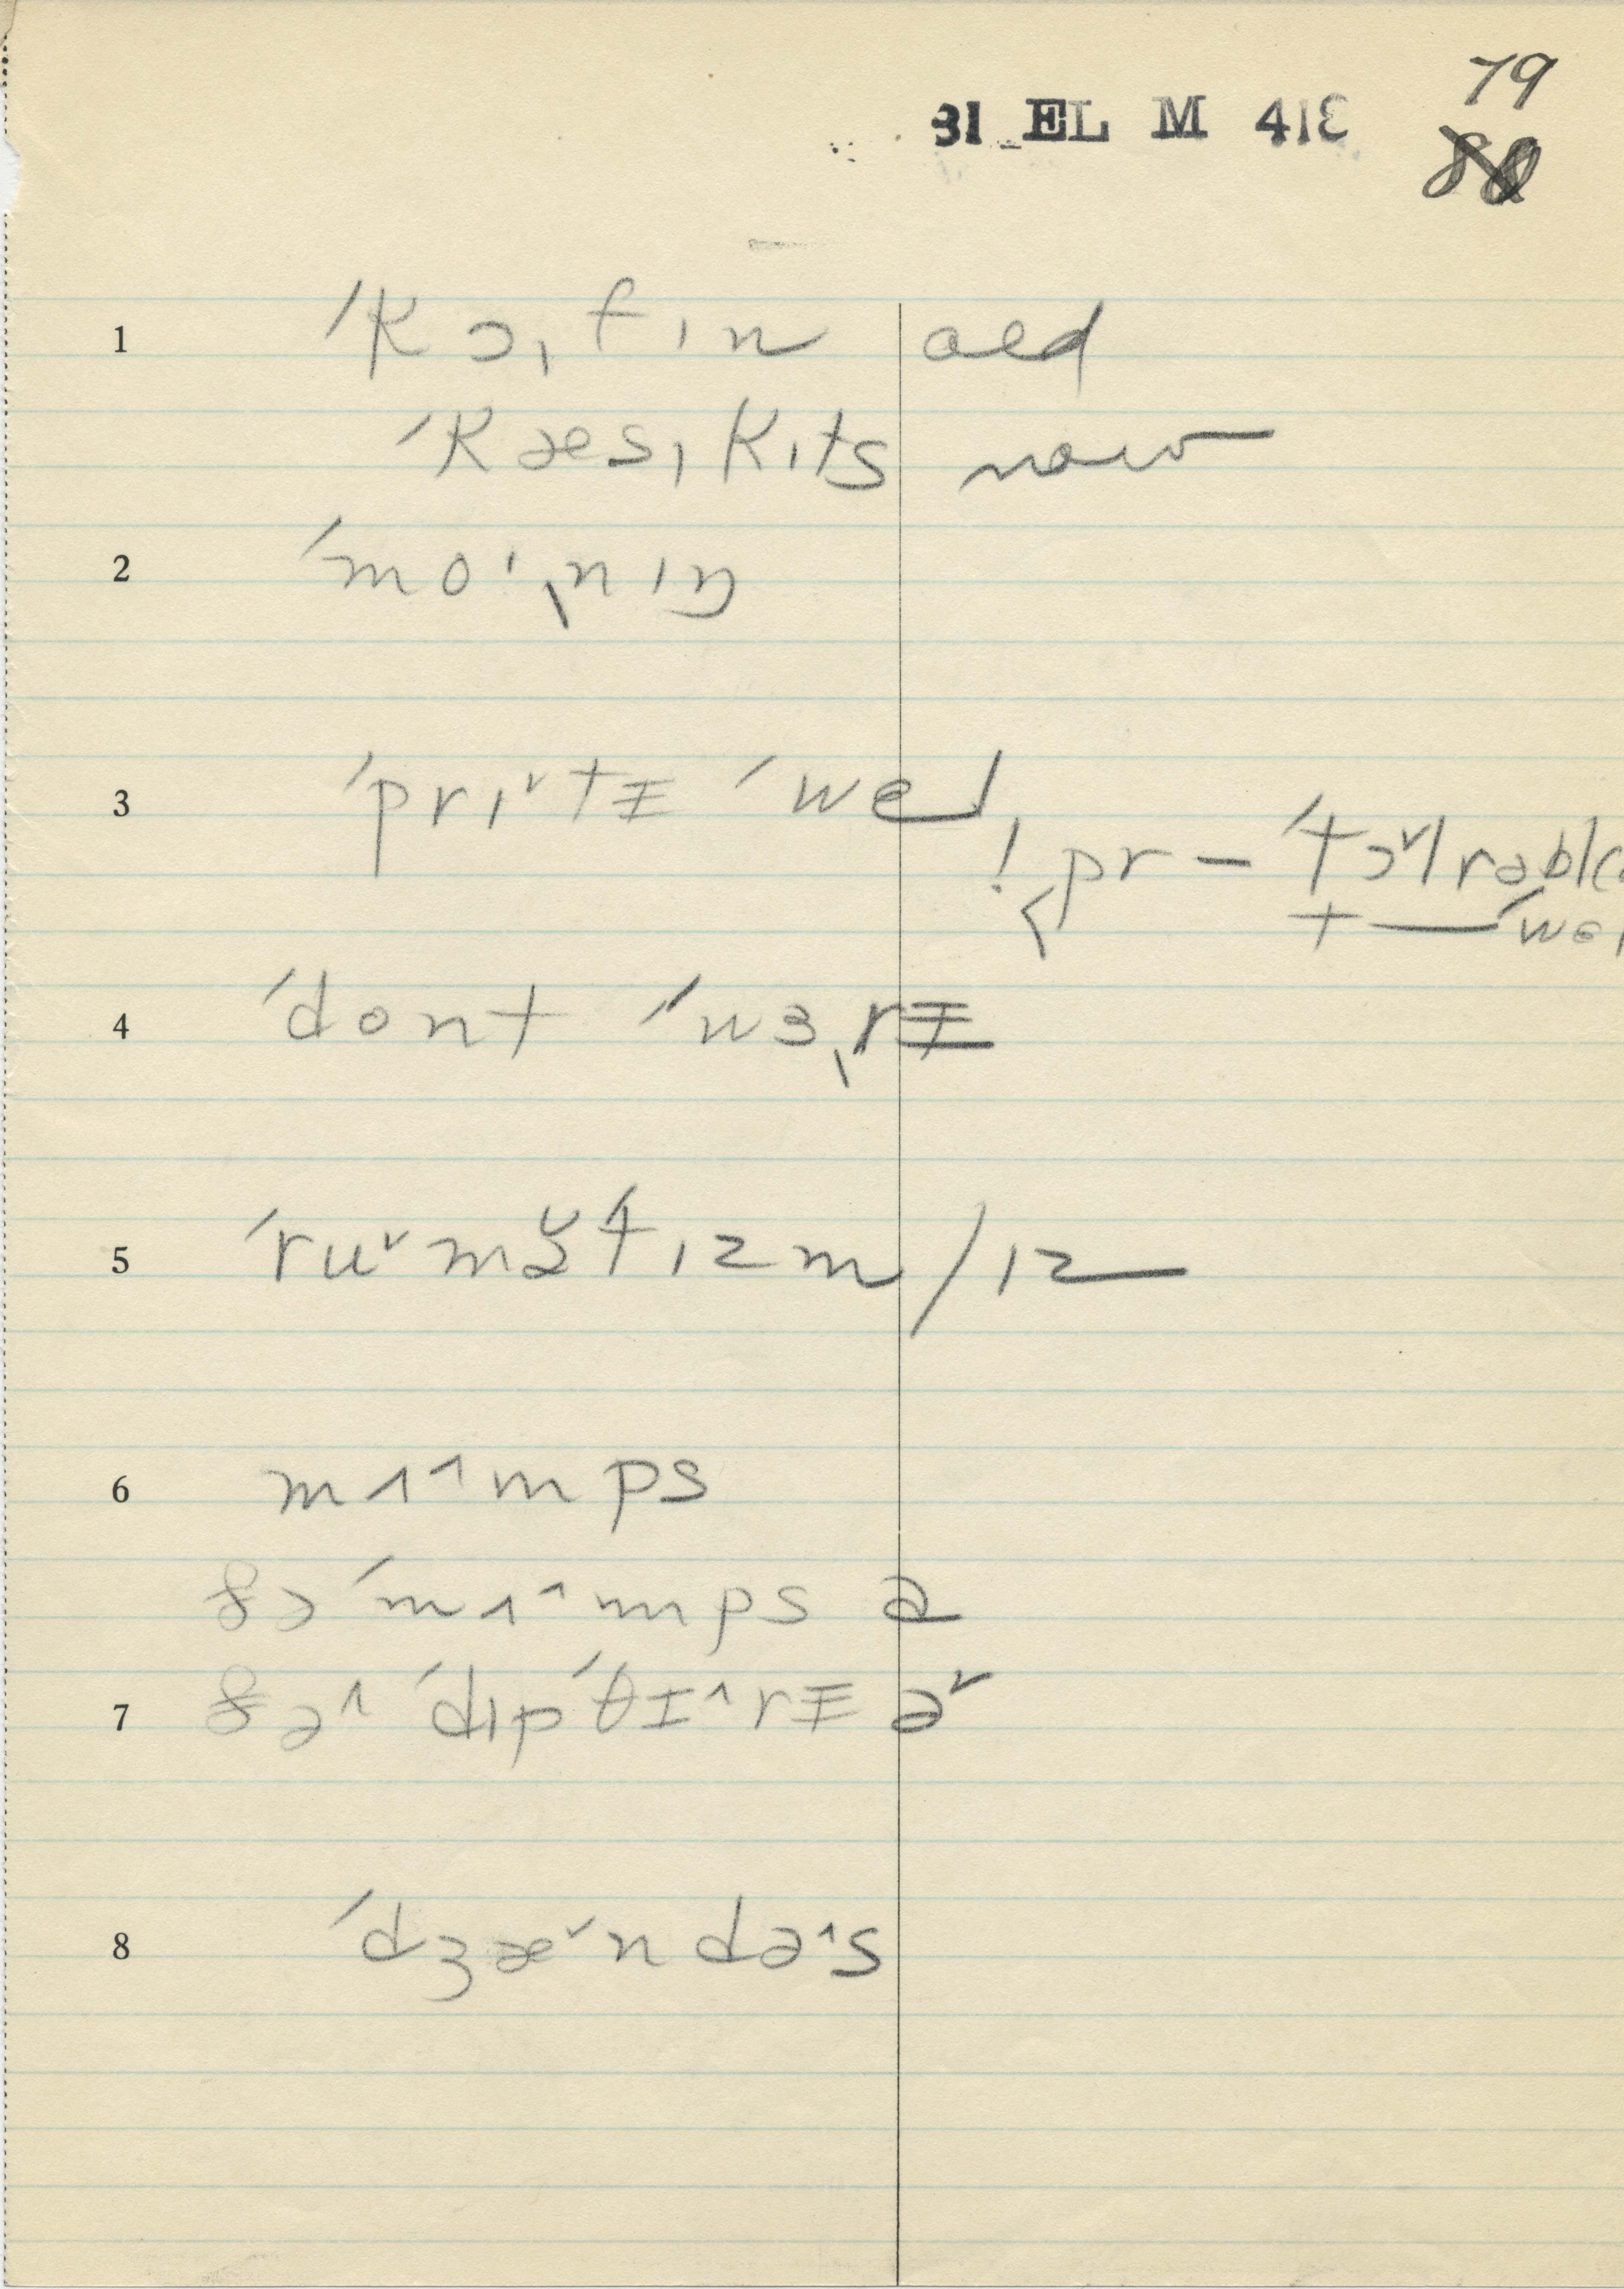 79
31 EL M 413
88
1 ˈkɔˌfɪn old
ˈkæsˌkɪts now
2 ˈmoˑˌnɪŋ
3 ˈprɪ˅tɨ ˈwel
! pr – ˈtɔ˅lrəbl
t — ˈwel
4 ˈdont ˈwɜˌrɨ
5 ˈru˅mə˅ˈtɪzm / ɪz
6 mʌ˄mps
ðə ˈmʌ˄mps ə
7 ðə˄ ˈdɪpˈθɪ˄rɨ ə˅
8 ˈdʒæ˅ndə˄s